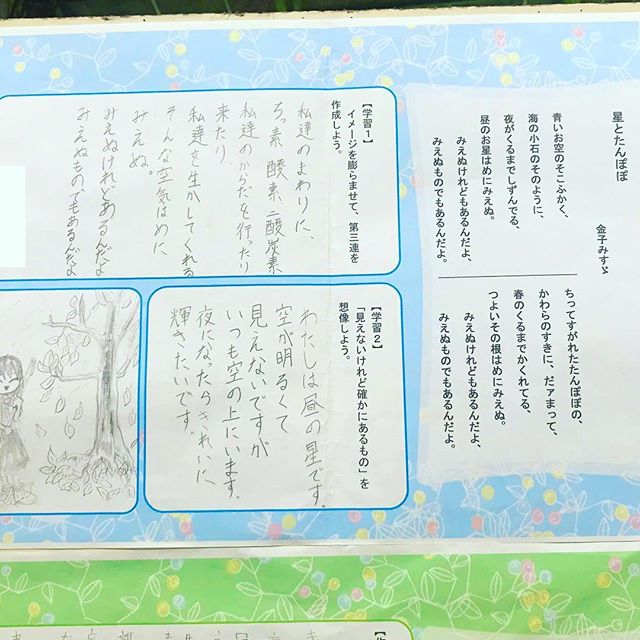 星とたんぽぽ
金子みすゞ
青いお空のそこふかく、
海の小石のそのように、
夜がくるまでしずんでる、
昼のお星はめにみえぬ。
みえぬけれどもあるんだよ、
みえぬものでもあるんだよ。
ちってすがれたたんぽぽの、
かわらのすきに、だァまって、
春のくるまでかくれてる、
つよいその根はめにみえぬ。
みえぬけれどもあるんだよ、
みえぬものでもあるんだよ。
【学習１】
イメージを膨らませて、第三連を
作成しよう。
私達のまわりに、
ちっ素、酸素、二酸炭素
私達のからだを行ったり
来たり、
私達を生かしてくれる
そんな空気はめに
みえぬ。
みえぬけれどあるんだよ
みえぬものでもあるんだよ
【学習２】
「見えないけれど確かにあるもの」を
想像しよう。
わたしは昼の星です。
空が明るくて
見えないですが
いつも空の上にいます。
夜になったらきれいに、
輝きたいです。